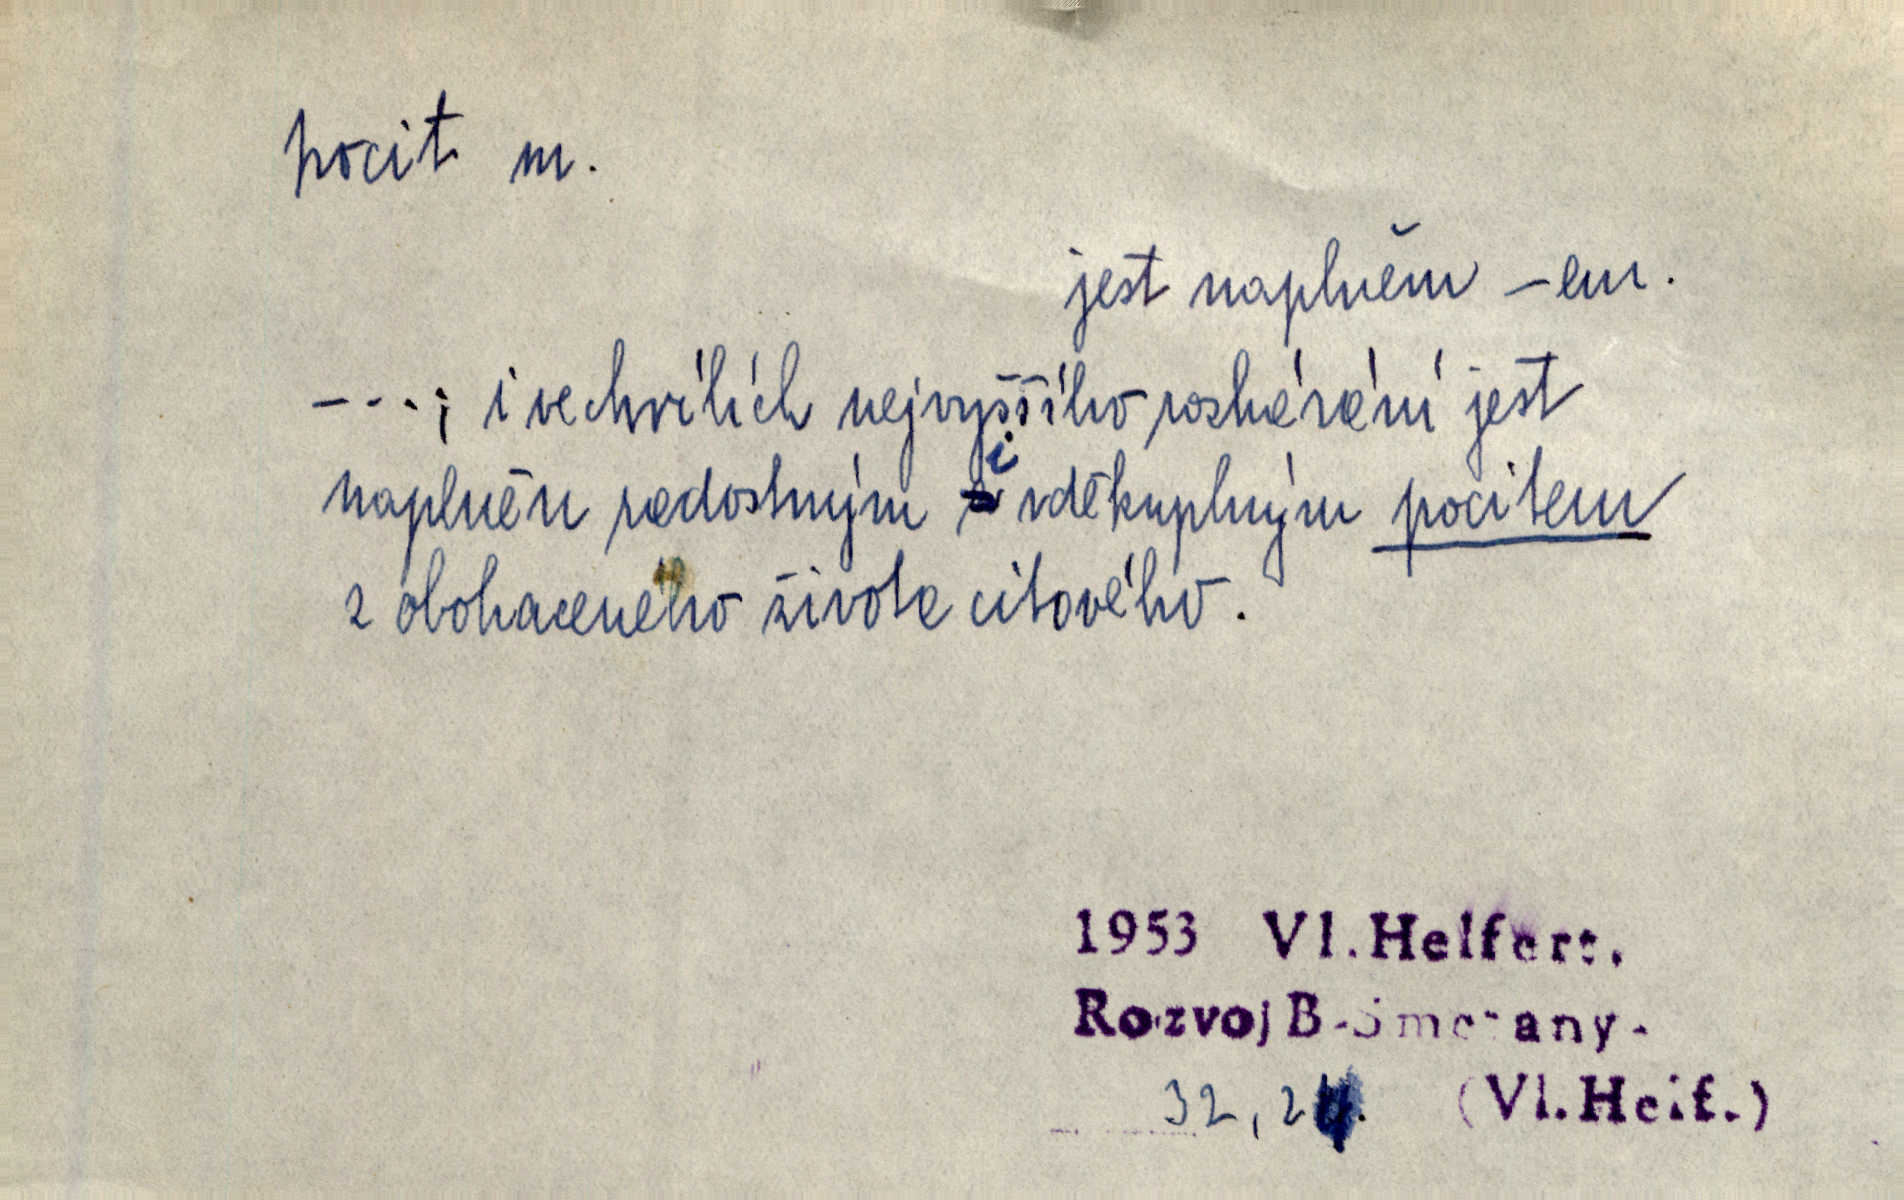 pocit m.
jest naplněn -em.
---; i ve chvílích nejvyššího rozhárání jest
naplněn radostným i vděkuplným pocitem
z obohaceného života citového.
1953 Vl. Helfert.
Rozvoj B. Smetany.
32, 24. (Vl. Helf.)